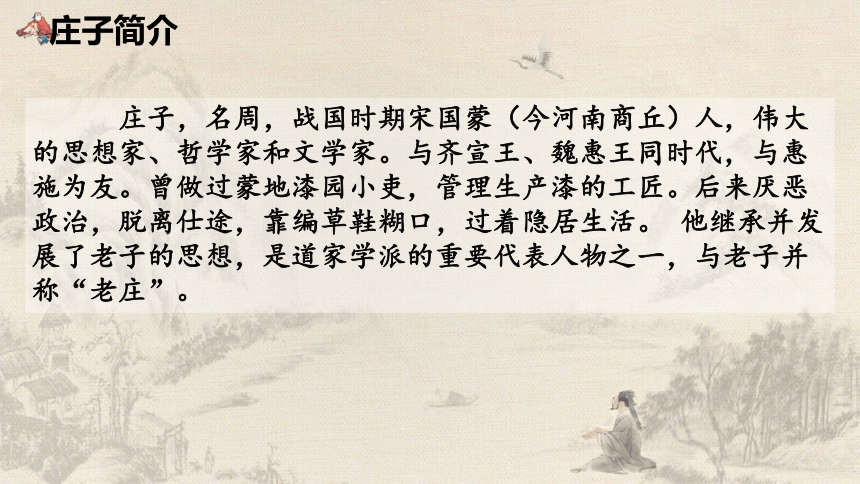 庄子简介
庄子，名周，战国时期宋国蒙（今河南商丘）人，伟大
的思想家、哲学家和文学家。与齐宣王、魏惠王同时代，与惠
施为友。曾做过蒙地漆园小吏，管理生产漆的工匠。后来厌恶
政治，脱离仕途，靠编草鞋糊口，过着隐居生活。 他继承并发
展了老子的思想，是道家学派的重要代表人物之一，与老子并
称“老庄”。